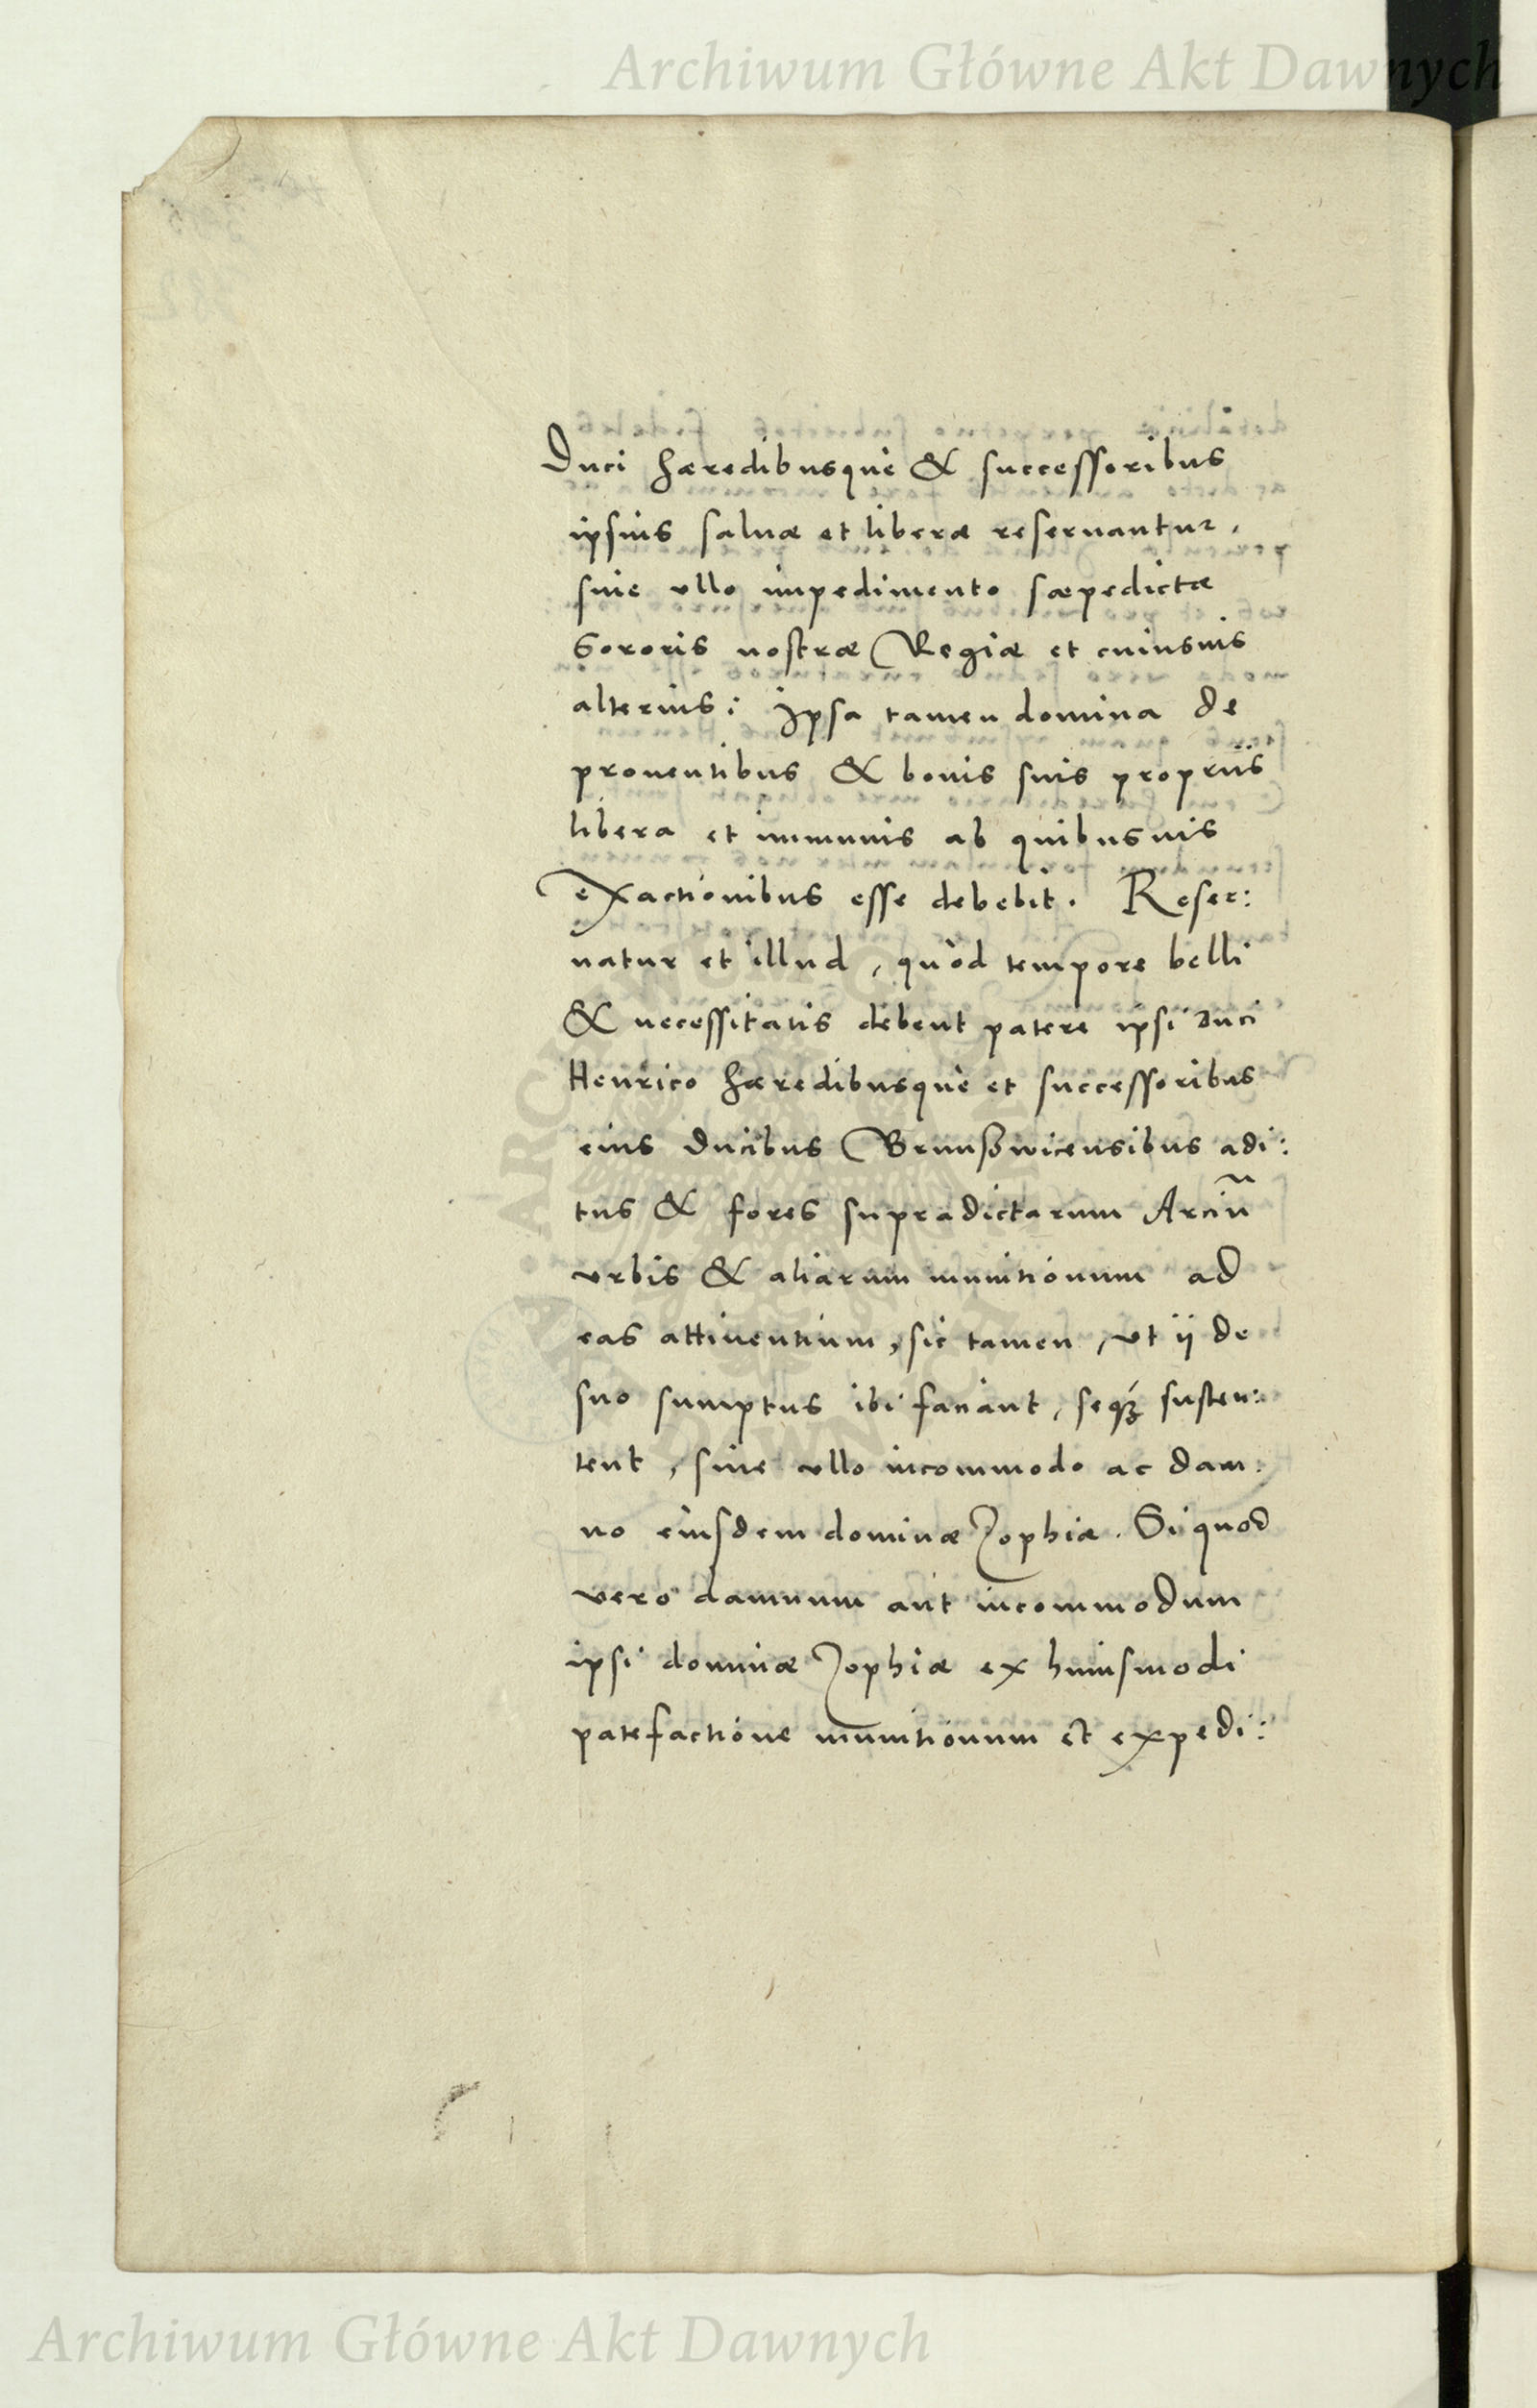 Archiwum Główne Akt Dawnych
Duci hæredibusque & successoribus
ipsius saluæ et liberæ reseruantur,
sine vllo impedimento sæpedictæ
Sororis nostræ Regiæ et cuiusuis
alterius: Ipsa tamen domina de
prouentibus & bonis suis propriis
libera et immunis ab quibusuis
exactionibus esse debebit. Reser:
uatur et illud, quòd tempore belli
& necessitatis debent patere ipsi duci
Henrico hæredibusquè et successoribus
eius ducibus Brunßwicensibus adi:
tus & fores supradictarum Arciũ
vrbis & aliarum munitionum ad
eas attinentium, sic tamen, vt ij de
suo sumptus ibi faciant, seqꝫ susten:
tent, sine vllo incommodo ac dam:
no eiusdem dominæ Zophiæ. Si quod
vero damnum aut incommodum
ipsi dominæ Zophiæ ex huiusmodi
patefactione munitionum et expedi:
Archiwum Główne Akt Dawnych